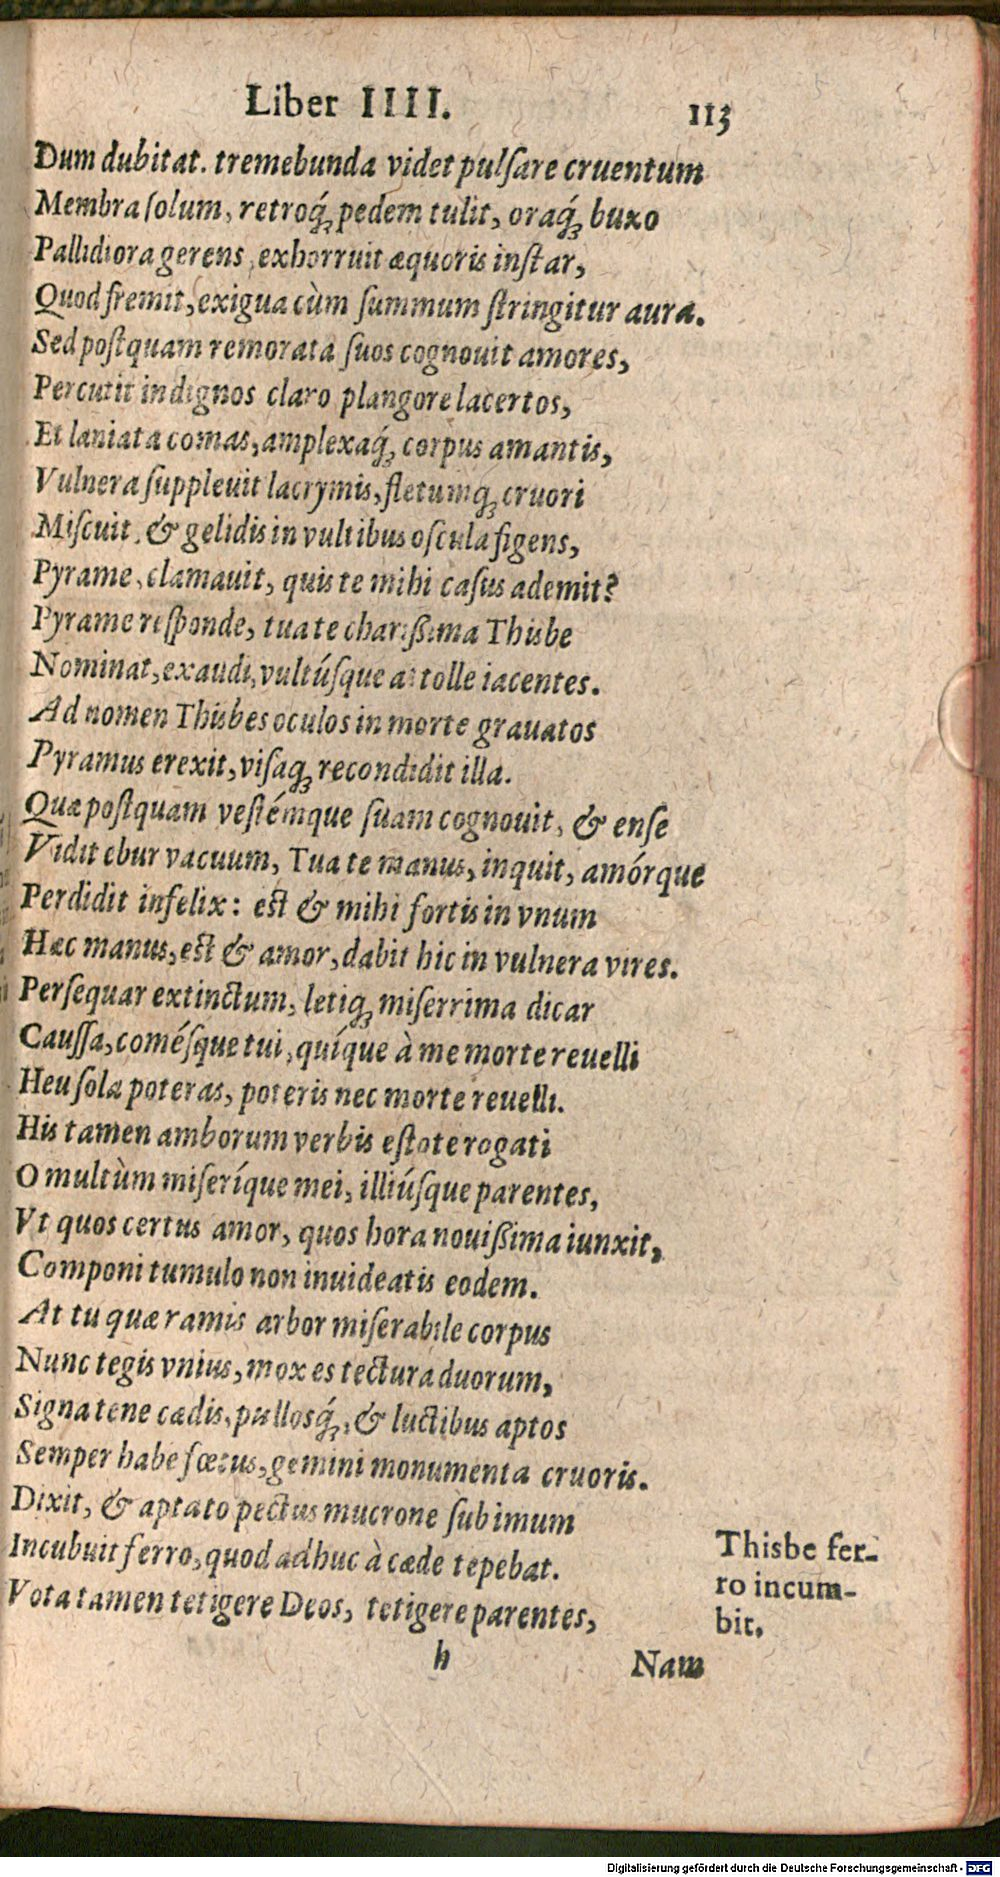 Liber IIII. 113
Dum dubitat. tremebunda videt pulſare cruentum
Membra ſolum, retroq́ꝫ pedem tulit, oraq́ꝫ buxo
Pallidiora gerens, exhorruit æquoris inſtar,
Quod fremit, exigua cùm ſummum ſtringitur aura.
Sed poſtquam remorata ſuos cognouit amores,
Percutit indignos claro plangore lacertos,
Et laniata comas, amplexaq́ꝫ corpus amantis,
Vulnera ſuppleuit lacrymis, fletumqꝫ cruori
Miſcuit, & gelidis in vultibus oſcula figens,
Pyrame, clamauit, quis te mihi caſus ademit?
Pyrame reſponde, tua te chariſsima Thisbe
Nominat, exaudi, vultúſque attolle iacentes.
Ad nomen Thisbes oculos in morte grauatos
Pyramus erexit, viſaqꝫ recondidit illa.
Quæ poſtquam veſtémque ſuam cognouit, & enſe
Vidit ebur vacuum, Tua te manus, inquit, amórque
Perdidit infelix: eſt & mihi fortis in vnum
Hæc manus, eſt & amor, dabit hic in vulnera vires.
Perſequar extinctum, letiqꝫ miſerrima dicar
Cauſſa, coméſque tui, quíque à me morte reuelli
Heu ſola poteras, poteris nec morte reuelli.
His tamen amborum verbis eſtote rogati
O multùm miſeríque mei, illiúſque parentes,
Vt quos certus amor, quos hora nouiſsima iunxit,
Componi tumulo non inuideatis eodem.
At tu quæ ramis arbor miſerabile corpus
Nunc tegis vnius, mox es tectura duorum,
Signa tene cædis, pullosq́ꝫ, & luctibus aptos
Semper habe fœtus, gemini monumenta cruoris.
Dixit, & aptato pectus mucrone ſub imum
Incubuit ferro, quod adhuc à cæde tepebat.
Vota tamen tetigere Deos, tetigere parentes,
Thisbe fer-
ro incum-
bit.
h Nam
Digitalisierung gefördert durch die Deutsche Forschungsgemeinschaft - DFG